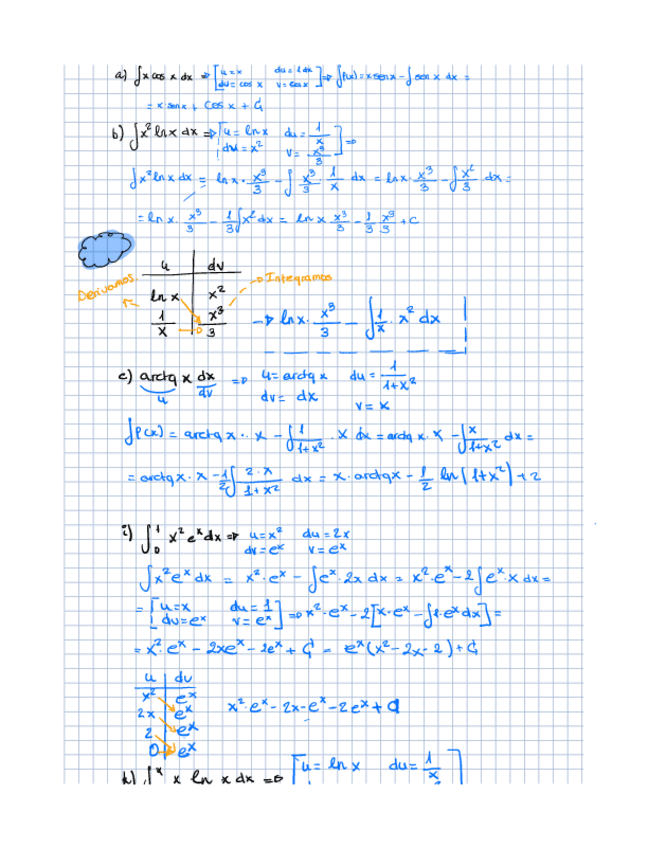 a) ∫x cos x dx ⇒ [u = x du = 1 dx
dv = cos x v = cos x] ⇒ ∫f(x) = x sen x - ∫sen x dx =
= x sen x + cos x + C
b) ∫x² ln x dx ⇒ [u = ln x du = 1/x
dv = x² v = x³/3] ⇒
∫x² ln x dx = ln x · x³/3 - ∫x³/3 · 1/x dx = ln x · x³/3 - ∫x²/3 dx =
= ln x · x³/3 - 1/3 ∫x² dx = ln x x³/3 - 1/3 x³/3 + C
u | dv
Derivamos ln x | x² → Integramos
1/x | x³/3 → ln x · x³/3 - ∫1/x · x² dx
c) arctg x dx ⇒ u = arctg x du = 1/1+x²
u dv dv = dx v = x
∫f(x) = arctg x · x - ∫1/1+x² · x dx = arctg x · x - ∫x/1+x² dx =
= arctg x · x - 1/2 ∫2·x/1+x² dx = x · arctg x - 1/2 ln|1+x²| + 2
i) ∫₀¹ x² eˣ dx ⇒ u = x² du = 2x
dv = eˣ v = eˣ
∫x² eˣ dx = x² · eˣ - ∫eˣ · 2x dx = x² · eˣ - 2∫eˣ · x dx =
= [u = x du = 1
dv = eˣ v = eˣ] ⇒ x² · eˣ - 2[x · eˣ - ∫1 · eˣ dx] =
= x² · eˣ - 2xeˣ - 2eˣ + C = eˣ(x² - 2x - 2) + C
u | dv
x² | eˣ
2x | eˣ x² · eˣ - 2x - eˣ - 2eˣ + C
2 | eˣ
0 | eˣ
x ln x dx ⇒ [u = ln x du = 1/x]